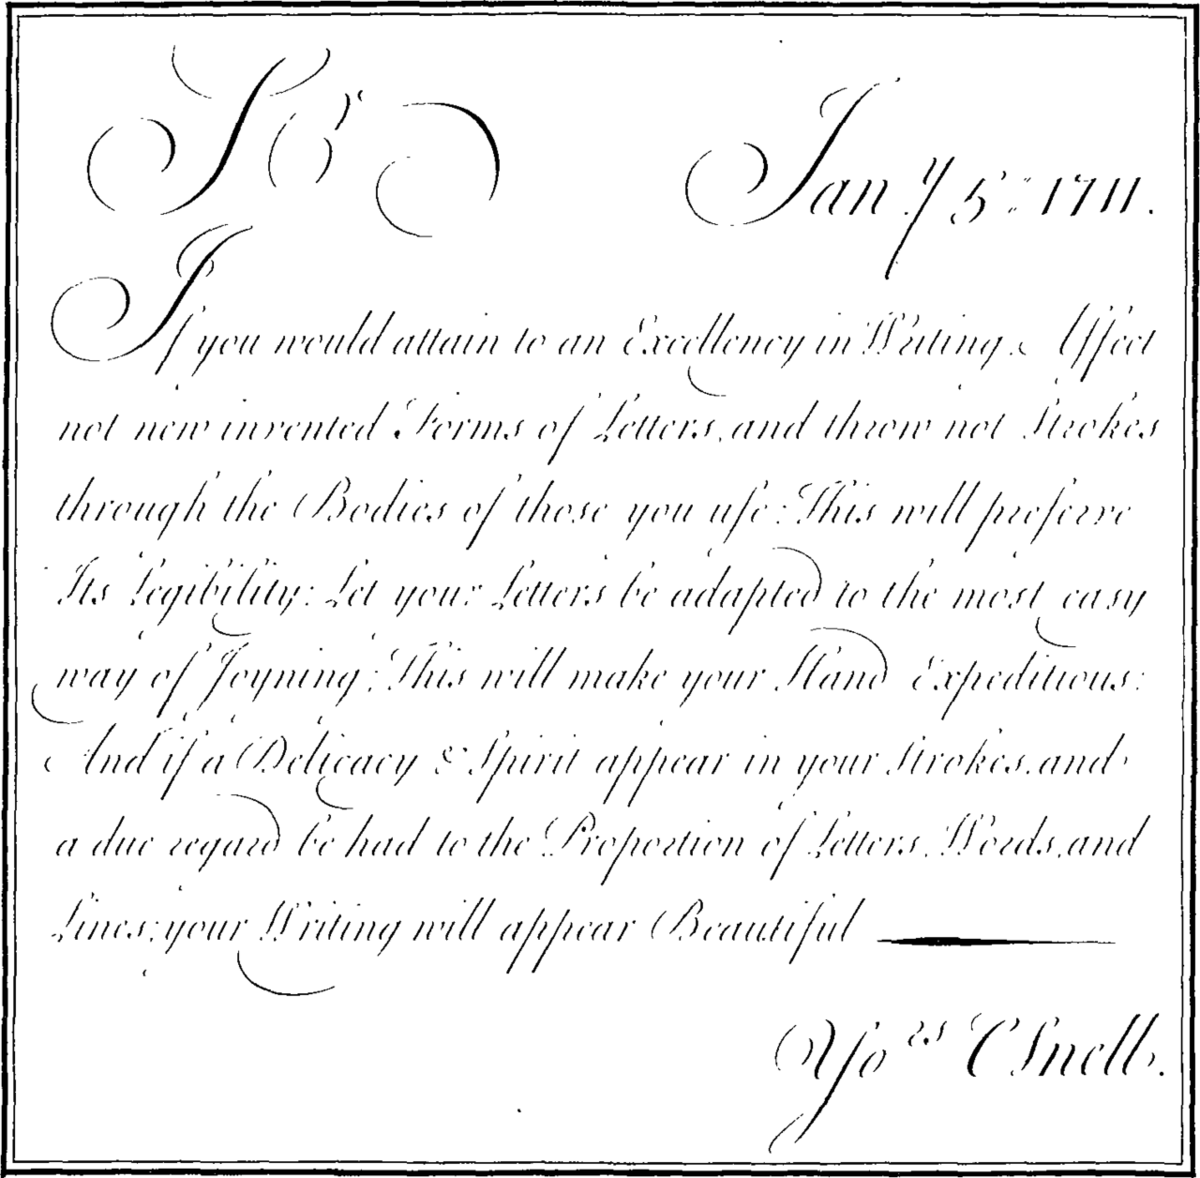 Sr Jan. y 5th 1711.
If you would attain to an Excellency in Writing, Affect
not new invented Forms of Letters, and throw not Strokes
through the Bodies of those you uſe: This will preſerve
Its Legibility: Let your Letters be adapted to the most easy
way of Joyning; This will make your Hand Expeditious:
And if a Delicacy & Spirit appear in your Strokes, and
a due regard be had to the Proportion of Letters, Words, and
Lines; your Writing will appear Beautiful
Yors C Snell.